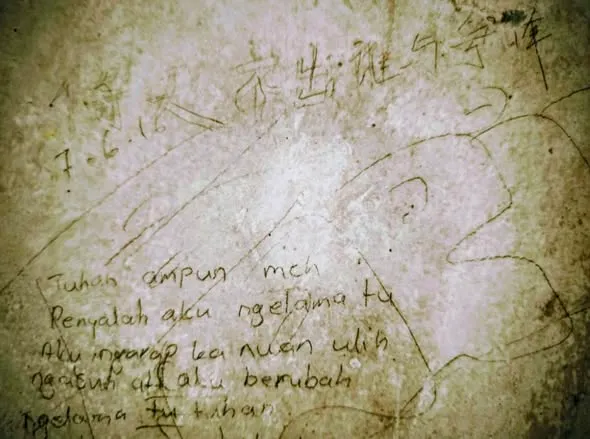 出誰与争峰
7.6.16
Tuhan ampun meh
Penyalah aku ngelama tu
Aku ngarap ka nuan ulih
ngasuh ati aku berubah
ngelama tu tuhan